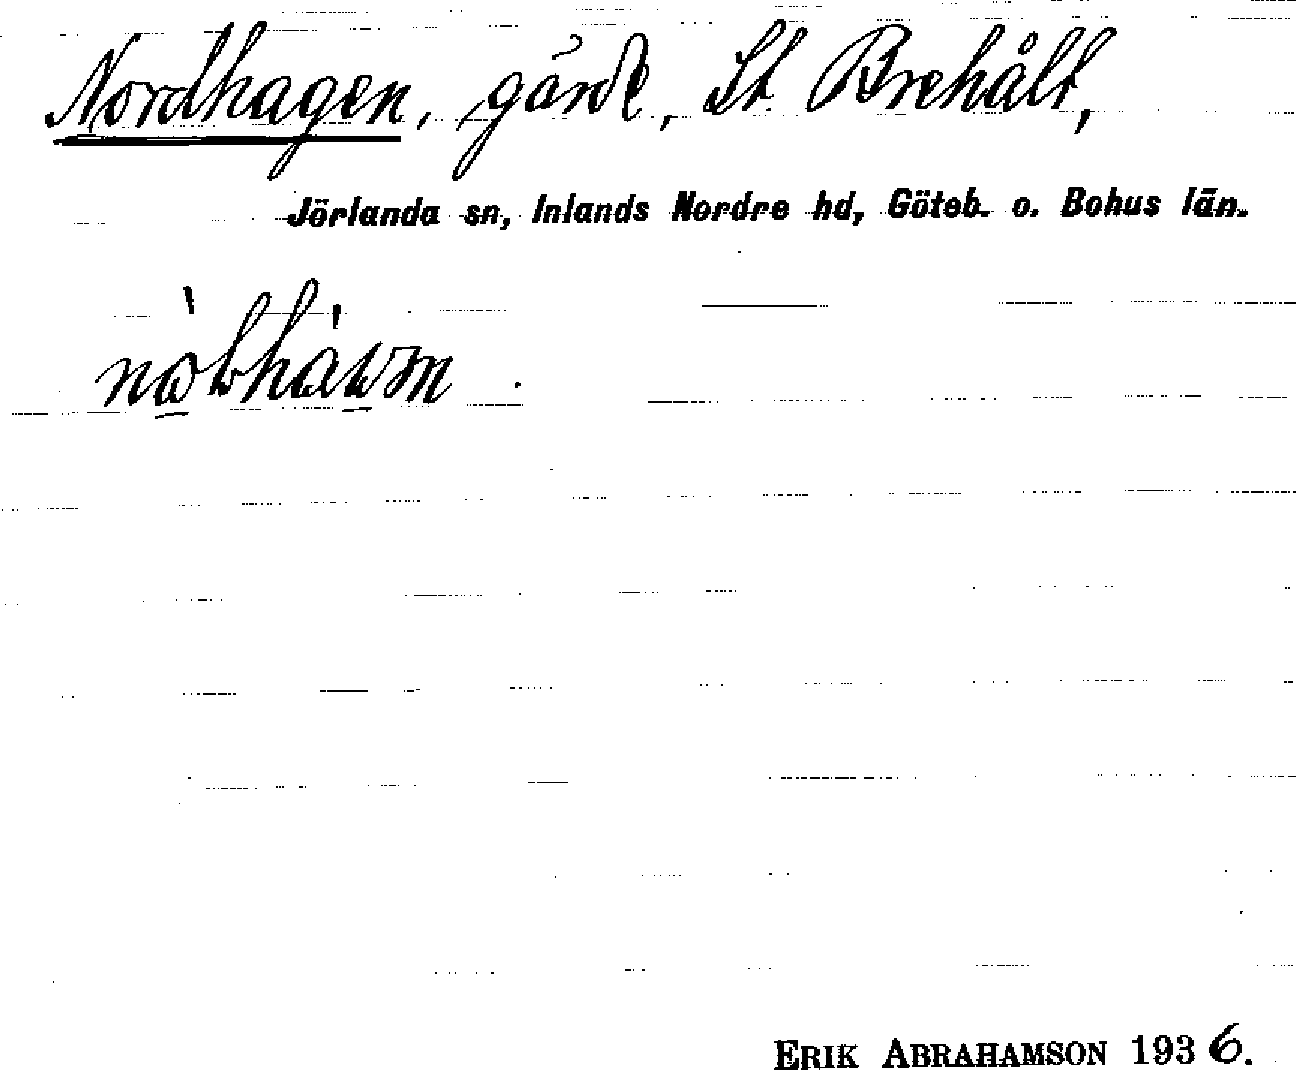 Nordhagen, gärde, St. Brehålt,
Jörlanda sn, Inlands Nordre hd, Göteb. o. Bohus län.
ERIK ABRAHAMSON 1936.